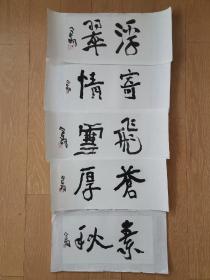 浮翠
寄情
飛雪
蒼厚
素秋